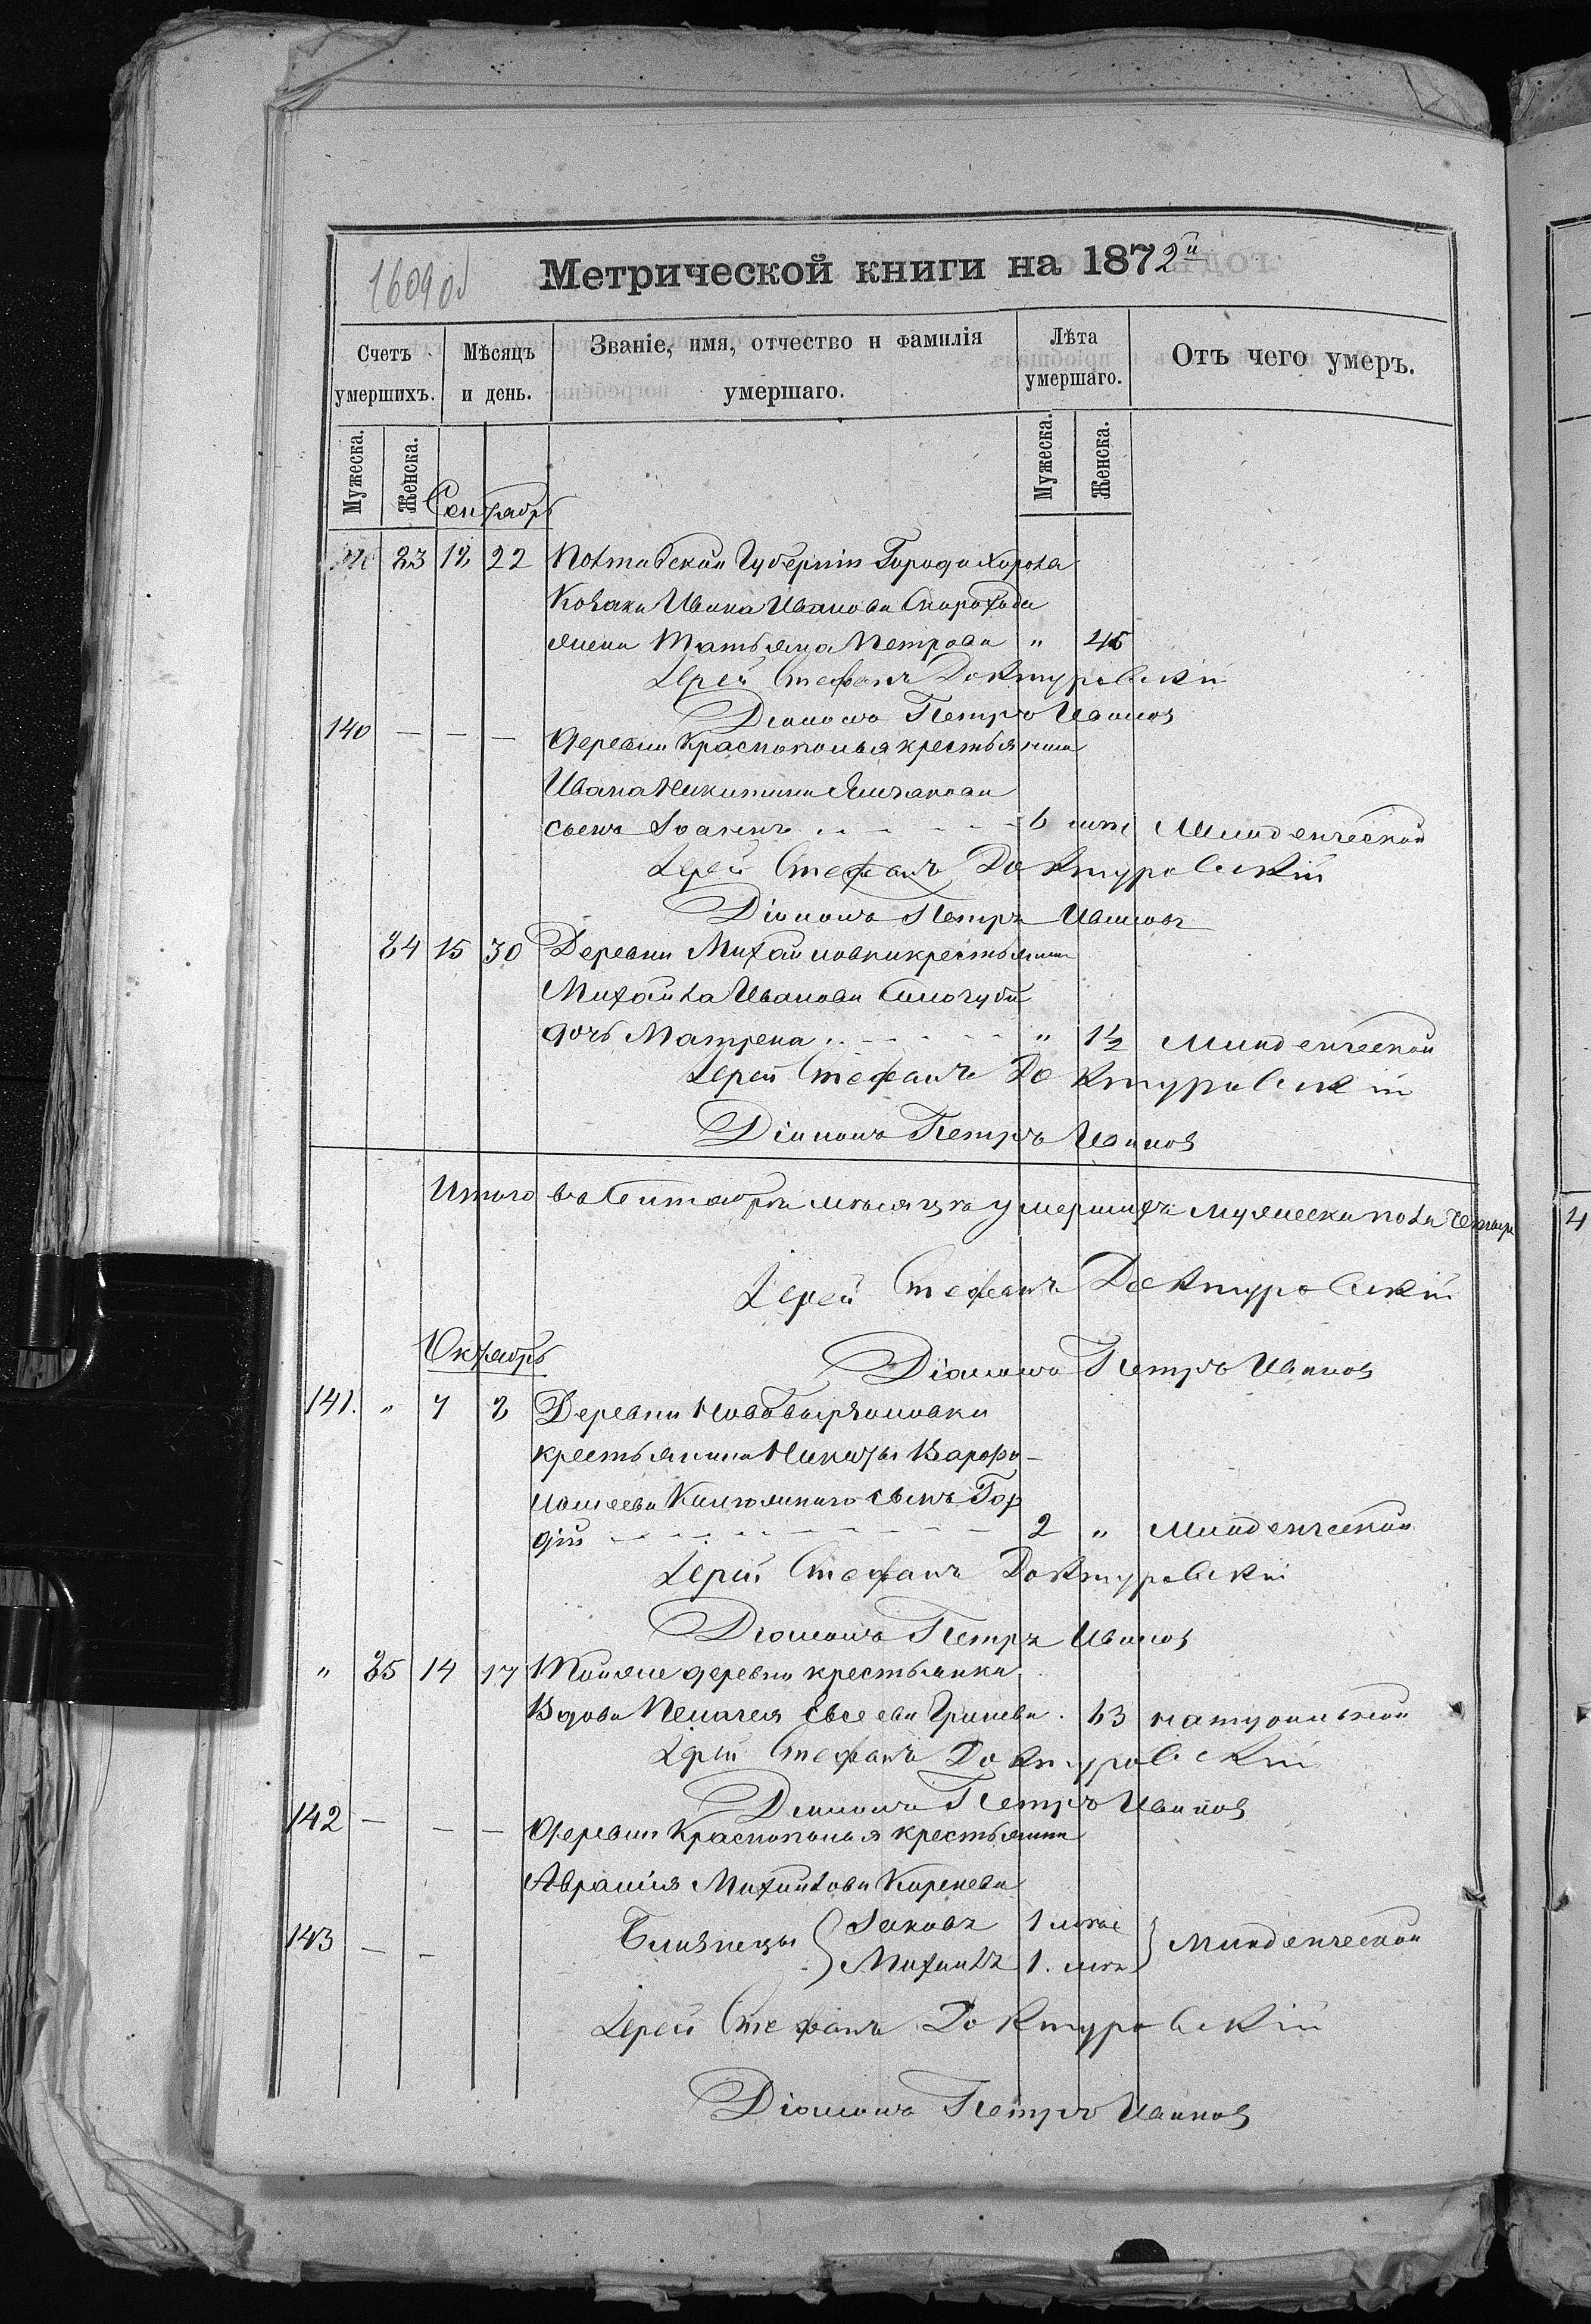 Метрической книги на 1872й
16090б
Счетъ умершихъ.
Мѣсяцъ и день.
Званіе, имя, отчество и фамилія умершаго.
Лѣта умершаго.
Отъ чего умеръ.
Мужеска.
Женска.
Мужеска.
Женска.
Сентябрь
83 12 22 Полтавской Губерніи Города Хорола
Козака Ивана Иванова Скорохода
жена Татьяна Петрова " 45
Іерей Стефанъ Доктуровскій
Діаконъ Петръ Ивановъ
140 — — — деревни Краснополья крестьянина
Ивана Никитина
сынъ Іоаннъ 6 мѣс Младенческой
Іерей Стефанъ Доктуровскій
Діаконъ Петръ Ивановъ
84 15 30 Деревни Михайловки крестьянина
Михаила Иванова
дочь Матрена " 1½ Младенческой
Іерей Стефанъ Доктуровскій
Діаконъ Петръ Ивановъ
Итого въ Сентябрѣ мѣсяцѣ умершихъ мужеска пола четыре
4
Іерей Стефанъ Доктуровскій
Октябрь
Діаконъ Петръ Ивановъ
141. " 7 8 Деревни
крестьянина Никиты Варфо-
ломеева сынъ Гор
дій 2 " Младенческой
Іерей Стефанъ Доктуровскій
Діаконъ Петръ Ивановъ
" 85 14 17 Тойже деревни крестьянка
Вдова Пелагея Евсеева Гринева 63 натуральной
Іерей Стефанъ Доктуровскій
Діаконъ Петръ Ивановъ
142 — — — деревни Краснополья крестьянина
Аврамія Михайлова Коренева
143 — — Близнецы Іаковъ 1 мѣс
Михаилъ 1. мѣс Младенческой
Іерей Стефанъ Доктуровскій
Діаконъ Петръ Ивановъ